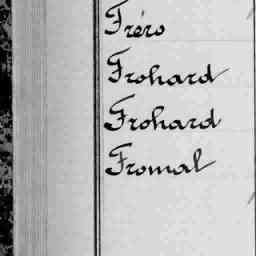 Fréro
Frohard
Frohard
Fromal